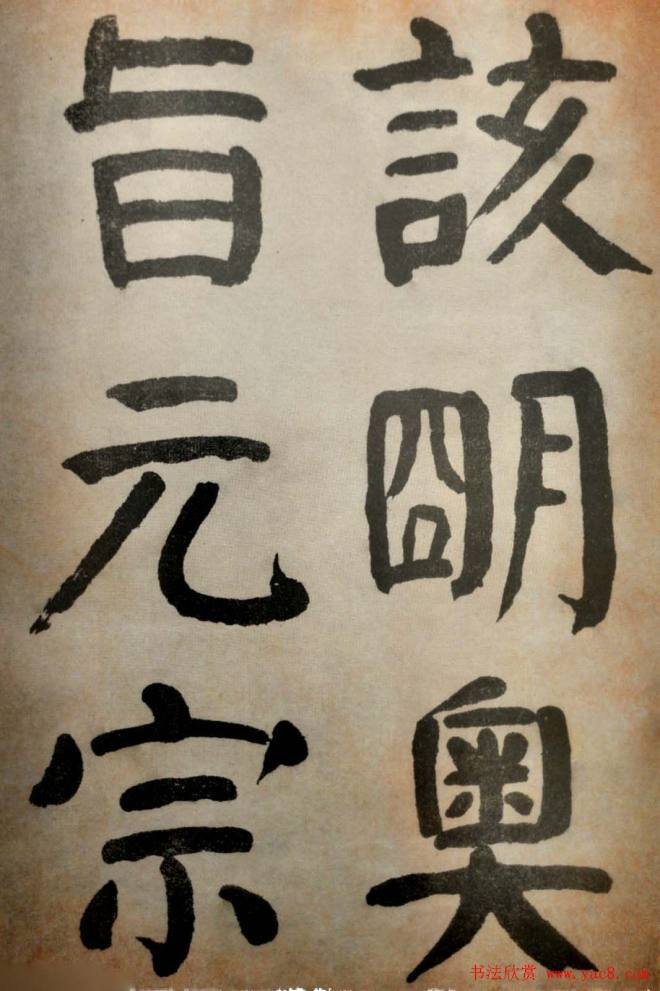 該朙奥
旨元宗
书法欣赏 www.yac8.com